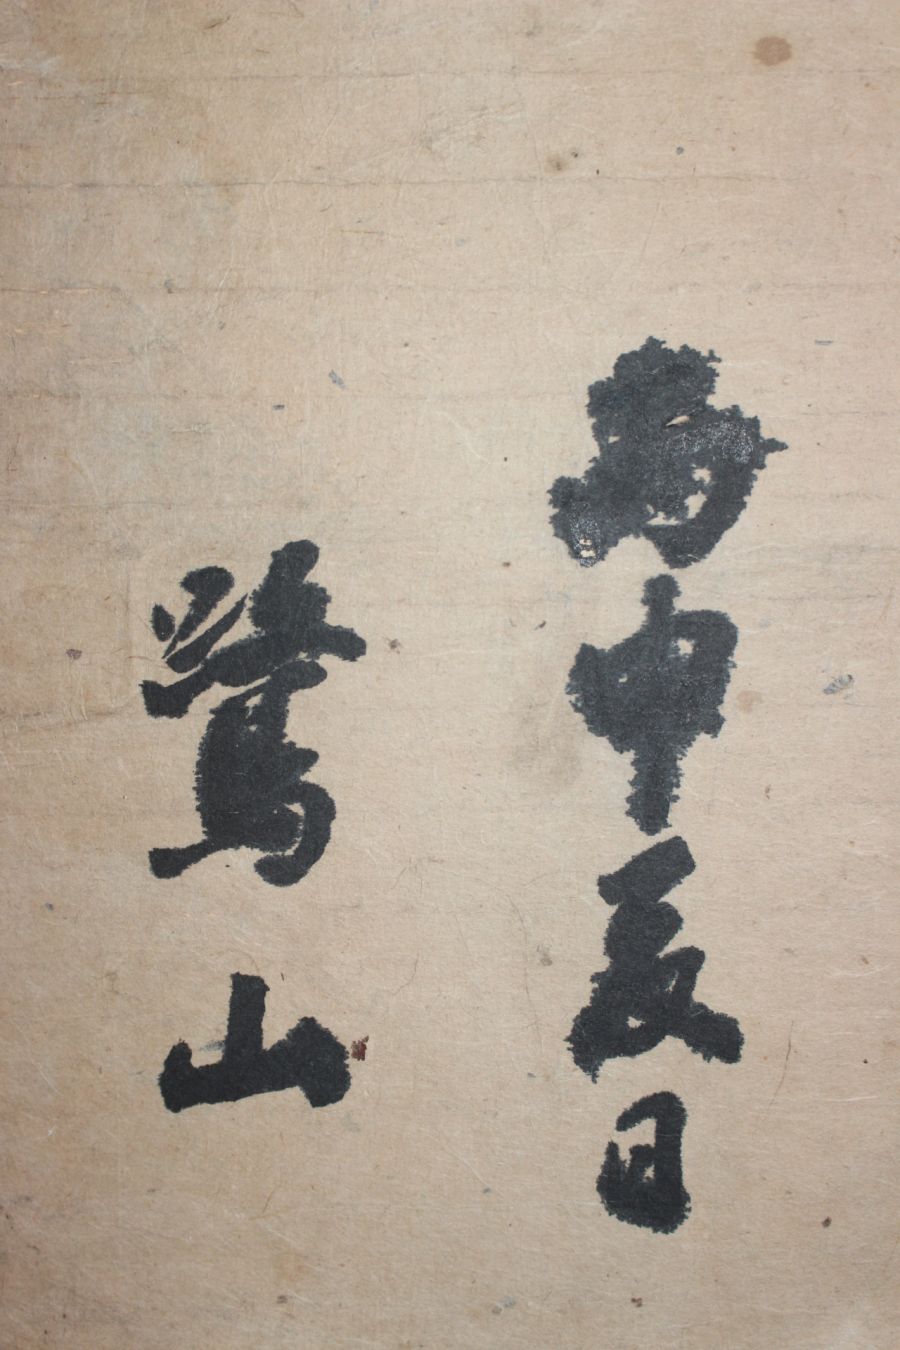 丙申夏日
鶯山